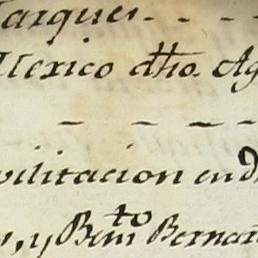 Marques. - - -
Mexico dho. Ag
- - - -
vilitacion en D
, y Benito Bernar